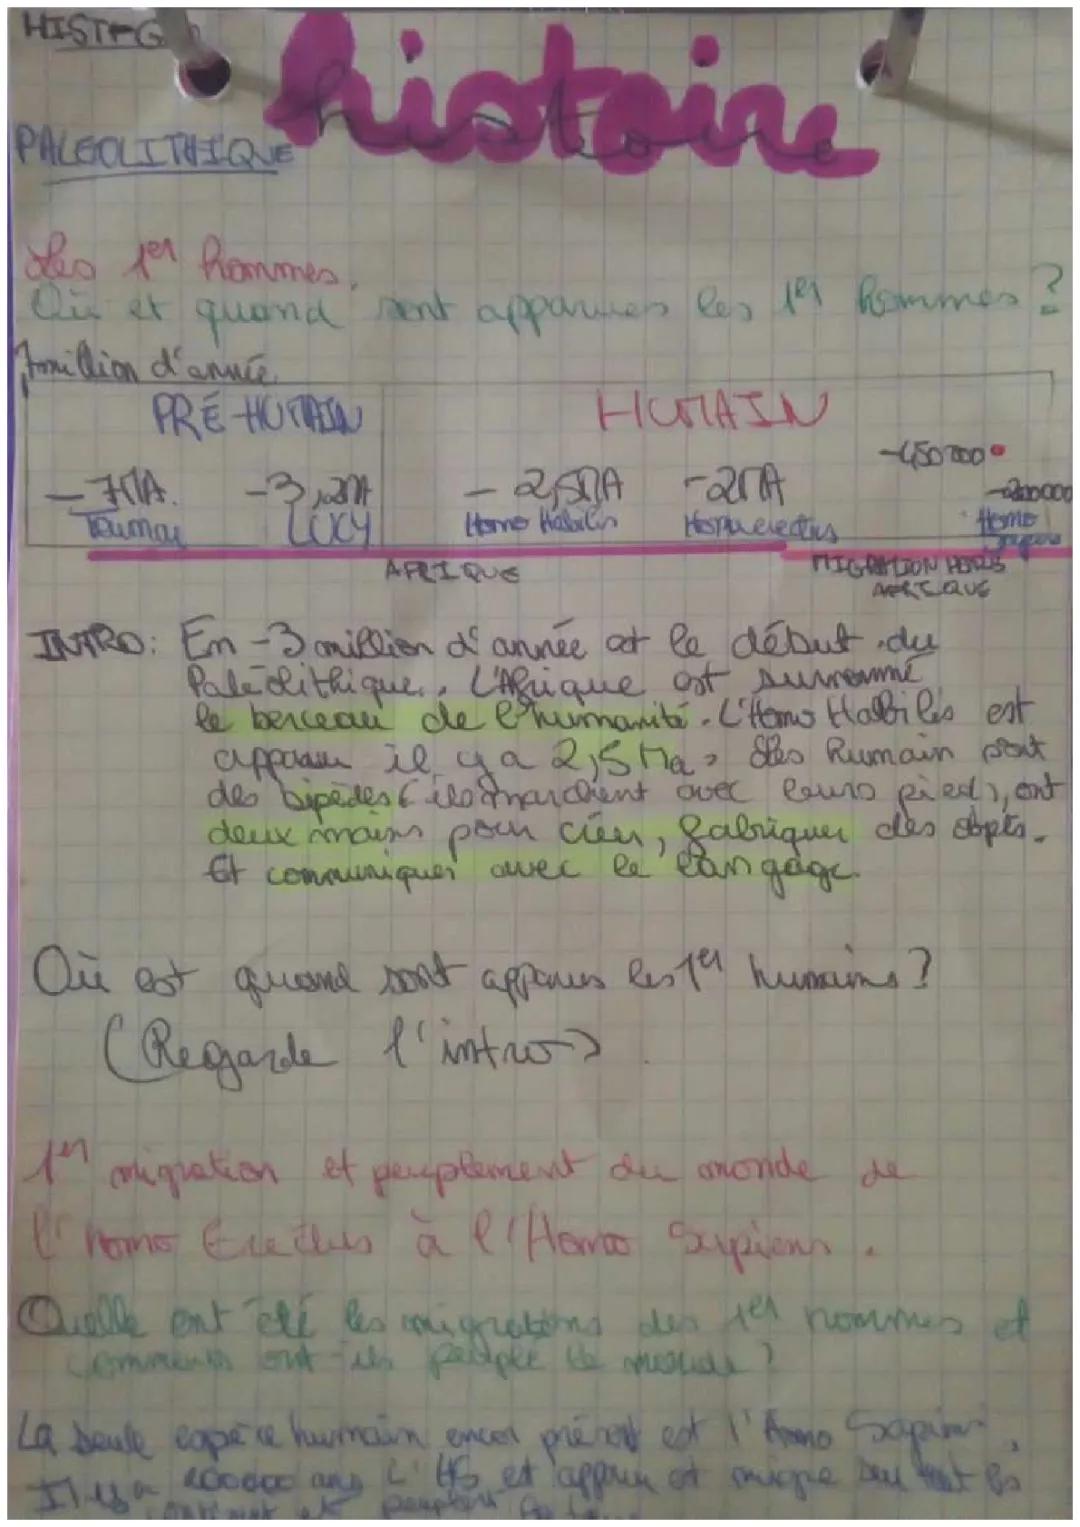 HISTEG
histoire
PALEOLITHIQUE
Les 1er hommes.
Où et quand sont apparues les 1er hommes ?
7 million d'année
PRÉ-HUMAIN HUMAIN
-7MA. -3,2MA -2,5MA -2MA -450 000 -200 000
Toumai LUCY Homo Habilis Homo erectus Homo sapiens
AFRIQUE MIGRATION HORS
AFRIQUE
INTRO: En -3 million d'année et le début du
Paléolithique. L'Afrique est surnommé
le berceau de l'humanité. L'Homo Habilis est
apparu il y a 2,5 Ma, Les humain sont
des bipèdes (ils marchent avec leurs pied), ont
deux mains pour créer, fabriquer des objets.
Et communiquer avec le langage.
Où est quand sont apparus les 1er humains ?
(Regarde l'intro)
1er migration et peuplement du monde de
l'homo Erectus à l'Homo Sapiens.
Quelle ont été les migrations des 1er hommes et
comment ont-ils peuplé le monde ?
La seule espèce humain encor présent est l'Homo Sapiens,
Il y a ans L'HS et apparu et migre sur tout les
et